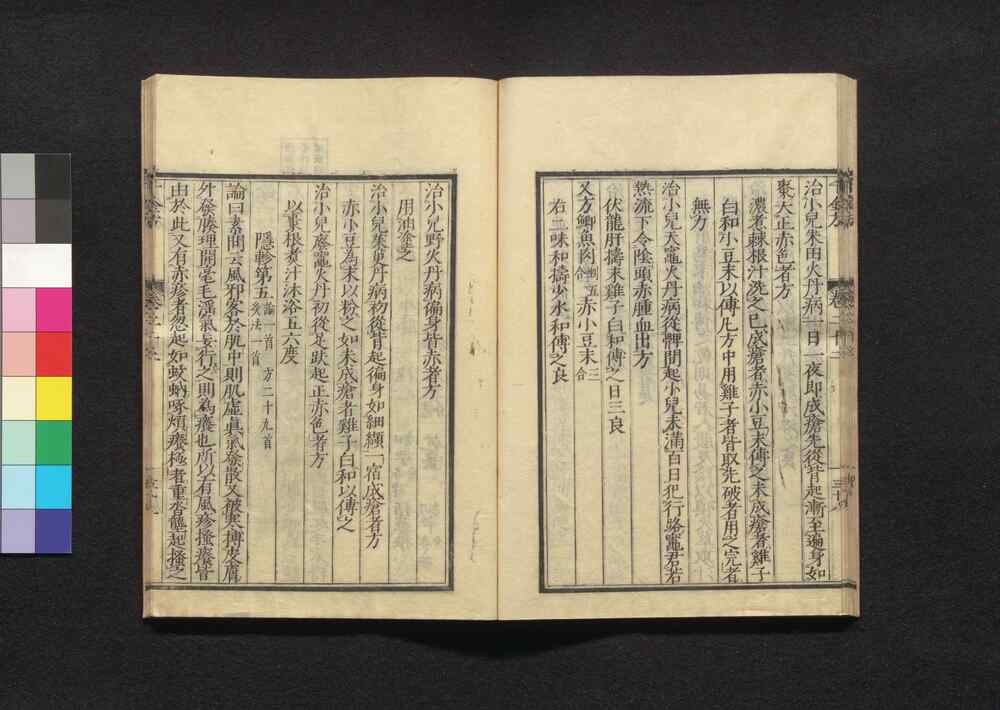 治小兒朱田火丹病一日一夜即成瘡先從背起漸至遍身如
棗大正赤色者方
濃煮棘根汁洗之已成瘡者赤小豆末傅之未成瘡者雞子
白和小豆末以傅凡方中用雞子者皆取先破者用之完者
無力
治小兒天竈火丹病從髀間起小兒未滿百日犯行路竈君若
熱流下令陰頭赤腫血出方
伏龍肝擣末雞子白和傅之日三良
又方鯽魚肉剉五合赤小豆末三合
右二味和擣少水和傅之良
治小兒野火丹病徧身皆赤者方
用油塗之
治小兒茱萸丹病初從背起徧身如細纈一宿成瘡者方
赤小豆為末以粉之如未成瘡者雞子白和以傅之
治小兒癈竈火丹初從足趺起正赤色者方
以棗根煮汁沐浴五六度
隱軫第五論一首方二十九首灸法一首
論曰素問云風邪客於肌中則肌虛真氣發散又被寒搏皮膚
外發腠理開毫毛淫氣妄行之則為癢也所以有風疹搔癢皆
由於此又有赤疹者忽起如蚊蚋啄煩癢極者重沓壟起搔之